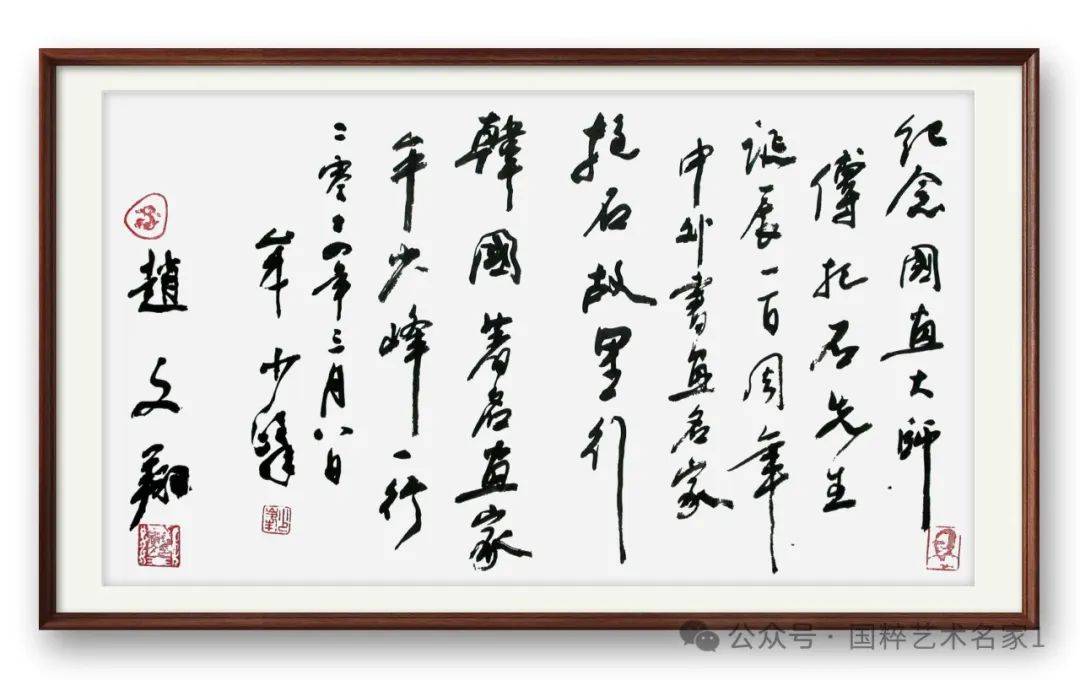 纪念國画大師
傅抱石先生
诞辰一百周年
中外書画名家
抱石故里行
韓國著名画家
少峰一行
二零零四年三月八日
少峰
趙文翔
公众号 · 国粹艺术名家1